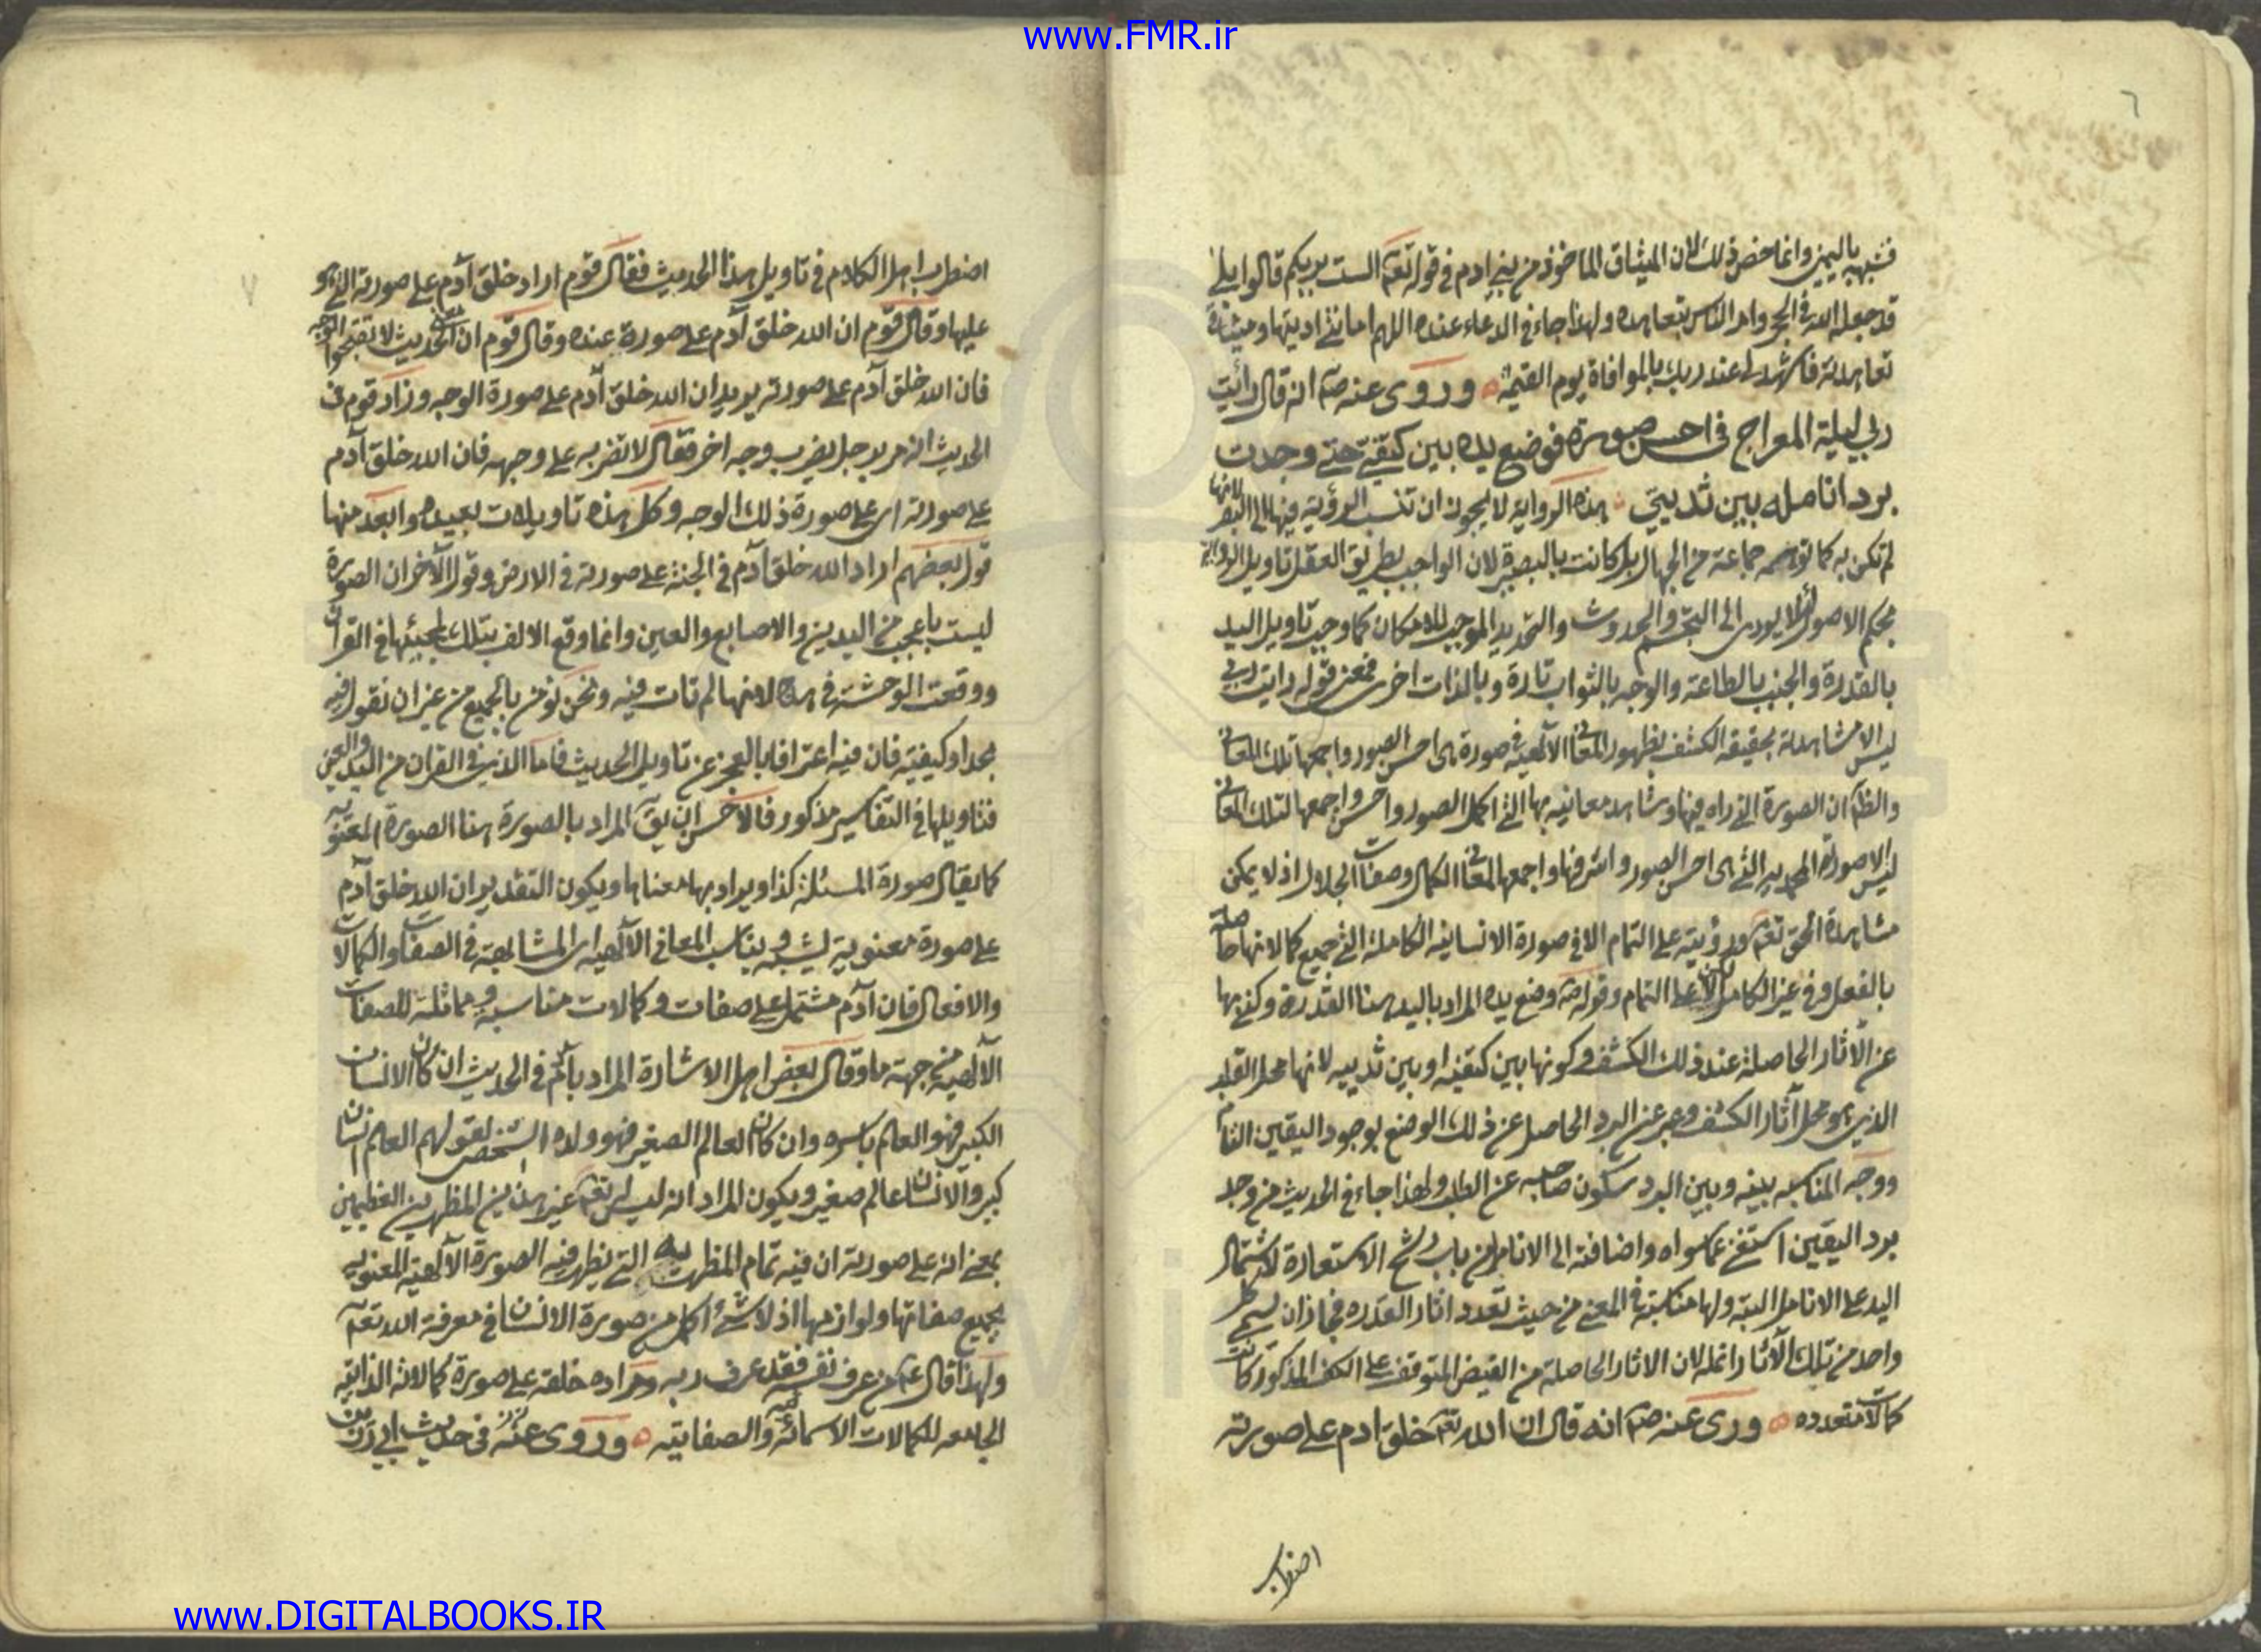 www.FMR.ir
٦
فشبهه باليمين وانما خص ذلك لان الميثاق الماخوذ من بني ادم في قوله تعه الست بربكم قالوا بلى
قد جعله الله في الحجر وامر الناس بتعاهده ولهذا جاء في الدعاء عنده اللهم امانتي اديتها وميثاق
تعاهدته فاشهد لي عند ربك بالموافاة يوم القيمة وروى عنه صه انه قال رأيت
ربي ليلة المعراج في احسن صورة فوضع يده بين كتفي حتى وجدت
برد انامله بين ثديي هذه الرواية لا يجوز ان تنسب الرؤية فيها الى البصر لانها
لم تكن به كما توهمه جماعة من الجهال بل كانت بالبصيرة لان الواجب بطريق العقل تاويل الرواية
بحكم الاصول لئلا يودى الى التجسم والحدوث والتحديد الموجب للامكان كما وجب تاويل اليد
بالقدرة والجنب بالطاعة والوجه بالثواب تارة وبالذات اخرى فمعنى قوله رايت ربي
ليس الا مشاهدته بحقيقه الكشف بظهور المعانى الآلهية في صورة هى احسن الصور واجمعها تلك المعانى
والظه ان الصورة التى راه فيها وشاهد معانيه بها التى اكمل الصور واحسن واجمعها لتلك المعانى
ليس الا صورة المحمديه التى هى احسن الصور واشرفها واجمعها لمعانى الكمال وصفات الجلال اذ لا يمكن
مشاهدة الحق تعه ورؤيته على التمام الا في صورة الانسانيه الكاملة التى جميع كمالاتها حاصلة
بالفعل وفي غير الكامل لا على التمام وقوله صه وضع يده المراد باليد هنا القدرة وكنى بها
عن الآثار الحاصلة عند ذلك الكشف وكونها بين كتفيه او بين ثدييه لانها محل القلب
الذى هو محل آثار الكشف وعبر عن البرد الحاصل عن ذلك الوضع بوجود اليقين التام
ووجه المناسبه بينه وبين البرد سكون صاحبه عن الطلب ولهذا جاء في الحديث من وجد
برد اليقين استغنى عما سواه واضافته الى الانامل من باب رشح الاستعارة لاشتمال
اليد على الانامل البتة ولها مناسبة في المعنى من حيث تعدد اثار القدره فجاز ان يسمى كل
واحد من تلك الآثار انمله لان الاثار الحاصلة من الفيض المتوقف على الكشف المذكور كانت
كمالات متعدده وروى عنه صه انه قال ان الله تعه خلق ادم على صورته
اضطرب
٧
اضطرب اهل الكلام في تاويل هذا الحديث فقال قوم اراد خلق آدم على صورته التى هو
عليها وقال قوم ان الله خلق آدم على صورة عنده وقال قوم ان الحديث لا تقبحوا الوجه
فان الله خلق آدم على صورته يريد ان الله خلق آدم على صورة الوجه وزاد قوم في
الحديث انه مر برجل يضرب وجه اخر فقال لا تضربه على وجهه فان الله خلق آدم
على صورته اى على صورة ذلك الوجه وكل هذه تاويلات بعيده وابعد منها
قول بعضهم اراد الله خلق آدم في الجنة على صورته في الارض وقول الآخر ان الصورة
ليست باعجب من اليدين والاصابع والعين وانما وقع الالف بتلك لمجيئها في القران
ووقعت الوحشة في هذه لانها لم تات فيه ونحن نؤمن بالجميع من غير ان نقول فيه
بحد او كيفية فان فيه اعترافا بالعجز عن تاويل الحديث فاما الذى في القران من اليد والعين
فتاويلها في التفاسير مذكور فالاحسن ان يق المراد بالصورة هنا الصورة المعنويه
كما يقال صورة المسئلة كذا ويراد بها معناها ويكون التقدير ان الله خلق آدم
على صورة معنوية يشبه ويناسب المعانى الآلهيه اى المشابهة في الصفات والكمالات
والافعال فان آدم مشتمل على صفات وكمالات مناسبة ومماثلة للصفات
الآلهية من جهة ما وقال بعض اهل الاشارة المراد بآدم في الحديث ان كان الانسان
الكبير فهو العالم باسره وان كان العالم الصغير فهو ولاه الشخص لقولهم العالم انسان
كبير والانسان عالم صغير ويكون المراد انه ليس لله تعه غير هذين المظهرين العظيمين
بمعنى انه على صورته ان فيه تمام المظهريه التى يظهر فيه الصورة الآلهية المعنويه
بجميع صفاتها ولوازمها اذ لا شئ اكمل من صورة الانسان في معرفة الله تعه
ولهذا قال عم من عرف نفسه فقد عرف ربه ومراده خلقه على صورة كمالاته الذاتيه
الجامعه للكمالات الاسمائيه والصفاتيه وروى عنه في حديث ابي رزين
www.DIGITALBOOKS.IR